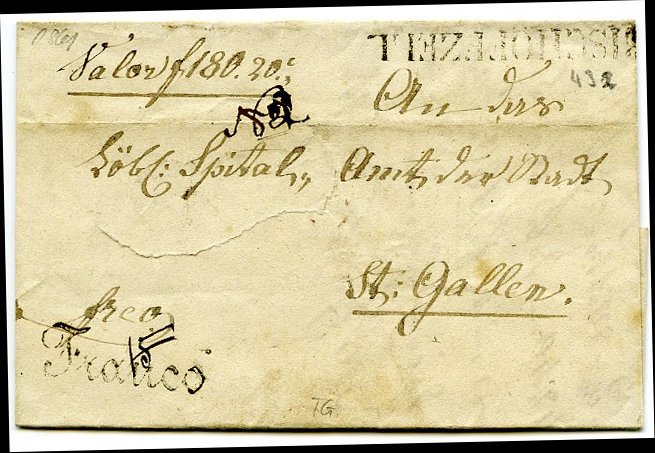 Valor f 180. 20.c
BISCHOFFZELL
432
An das
Löbl: Spital, Amt der Stadt
St: Gallen.
frco
Franco
TG